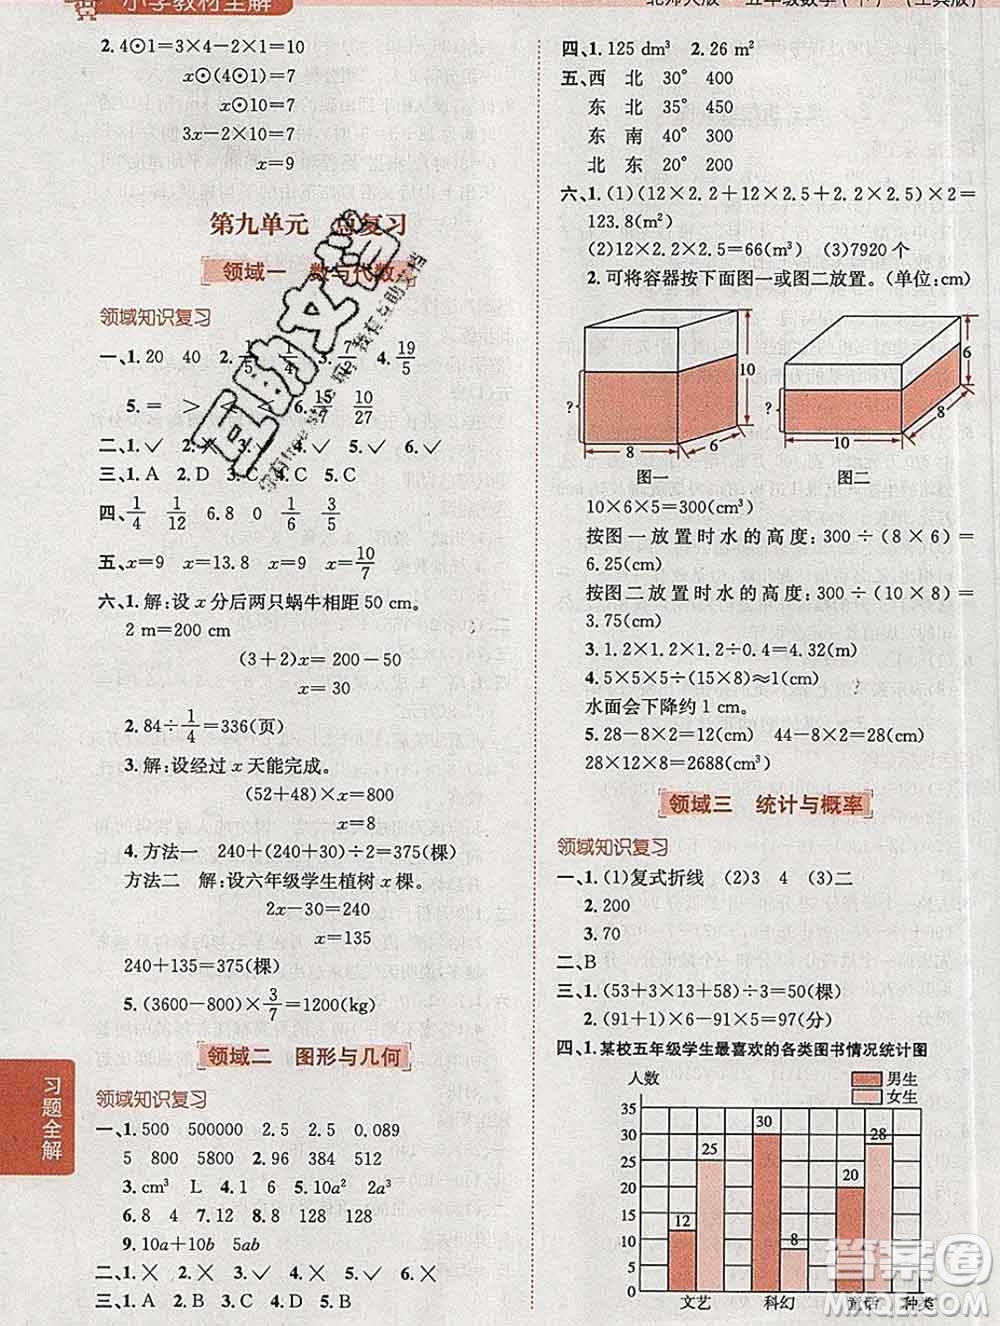 小学教材全解
北师大版 五年级数学(下) (工具版)
2. 4⊙1=3×4-2×1=10
x⊙(4⊙1)=7
x⊙10=7
3x-2×10=7
x=9
第九单元 总复习
领域一 数与代数
领域知识复习
一、1. 20 40 2. 1/5 1/4 3. 7/9 4. 19/5
5. = > < 6. 10/27
二、1. ✓ 3. ✓ 4. ✓ 5. ✓ 6. ✓
三、1. A 2. D 3. C 4. C 5. A
四、1/4 1/12 6.8 0 1/6 3/5
五、x=9 x=13.8 x=9 x=10/7
六、1. 解:设 x 分后两只蜗牛相距 50 cm。
2 m=200 cm
(3+2)x=200-50
x=30
2. 84÷1/4=336(页)
3. 解:设经过 x 天能完成。
(52+48)×x=800
x=8
4. 方法一 240+(240+30)÷2=375(棵)
方法二 解:设六年级学生植树 x 棵。
2x-30=240
x=135
240+135=375(棵)
5. (3600-800)×3/7=1200(kg)
领域二 图形与几何
领域知识复习
一、1. 500 500000 2.5 2.5 0.089
5 800 5800 2. 96 384
3. cm³ L 4. 1 6 5. 10a² 2a³
6. 8 4 7. 12 8. 8
9. 10a+10b 5ab
二、1. × 2. × 3. ✓ 4. ✓ 5. × 6. ×
三、1. A 2. C 3. B 4. B 5. A
习题全解
四、1. 125 dm³ 2. 26 m²
五、西 北 30° 400
东 北 35° 450
东 南 40° 300
北 东 20° 200
六、1. (1)(12×2.2+12×2.5+2.2×2.5)×2=
123.8(m²)
(2)12×2.2×2.5=66(m³) (3)7920 个
2. 可将容器按下面图一或图二放置。(单位:cm)
? 10 8 6
? 6 8 10
图一 图二
10×6×5=300(cm³)
按图一放置时水的高度:300÷(8×6)=
6.25(cm)
按图二放置时水的高度:300÷(10×8)=
3.75(cm)
3. 1.2×1.2×1.2÷0.4=4.32(m)
4. 5×5×5÷(15×8)≈1(cm)
水面会下降约 1 cm。
5. 28-8×2=12(cm) 44-8×2=28(cm)
28×12×8=2688(cm³)
领域三 统计与概率
领域知识复习
一、1. (1)复式折线 (2)3 4 (3)二
2. 200
3. 70
二、B
三、1. (53+3×13+58)÷3=50(棵)
2. (91+1)×6-91×5=97(分)
四、1. 某校五年级学生最喜欢的各类图书情况统计图
人数 男生
女生
35
30
25
20
15
10
5
0
12 25 30 8 20 28
文艺 科幻 童话 种类